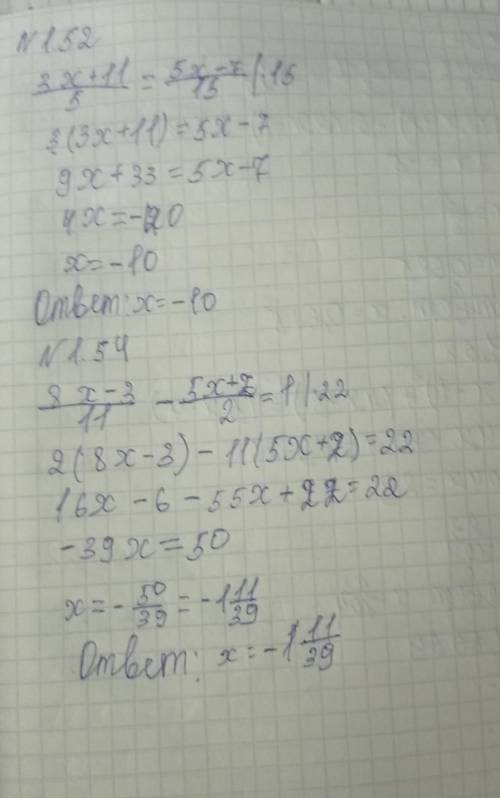 N 1.52
3x+11/5 = 5x-7/15 | ·15
3(3x+11)=5x-7
9x+33=5x-7
4x=-40
x=-10
Ответ: x=-10
N 1.54
8x-3/11 - 5x+2/2 = 1 | ·22
2(8x-3)-11(5x+2)=22
16x-6-55x+22=22
-39x=50
x=-50/39=-1 11/39
Ответ: x=-1 11/39